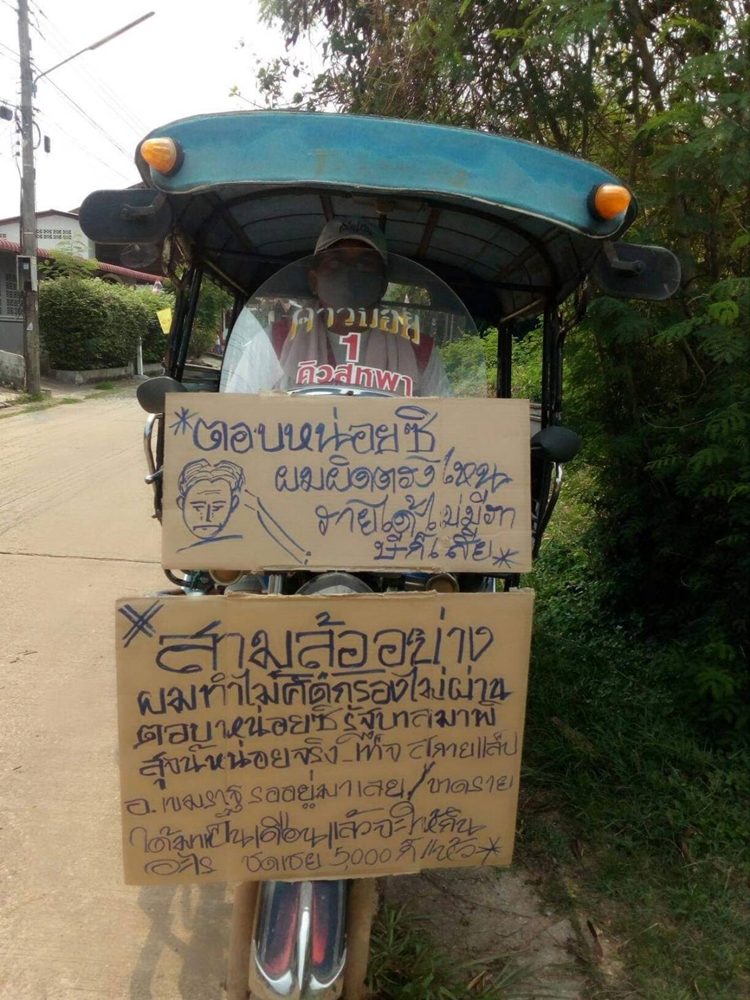 คาวบอย
1
คิวสุทพา
*ตอบหน่อยซิ
ผมผิดตรงไหน
รายได้ไม่มีภา
ษีก็เสีย*
*สามล้ออย่าง
ผมทำไม่คัดกรองไม่ผ่าน
ตอบหน่อยซิรัฐบาลมาพิ
สูจน์หน่อยจริง_เท็จ สกายแล็ป
อ.เขมราฐ รออยู่มาเลย/ขาดราย
ได้มาเป็นเดือนแล้วจะให้กิน
อะไร ชดเชย 5,000 ก็แห้ว*